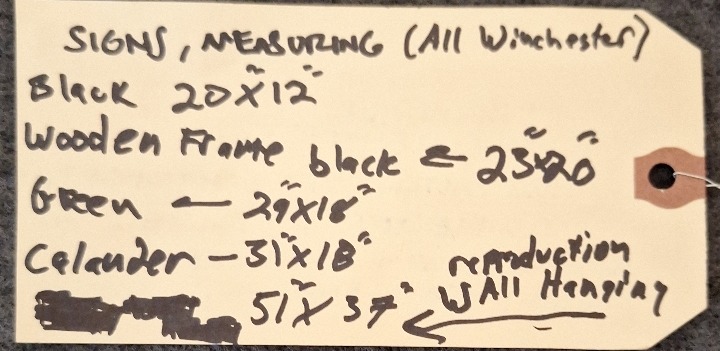 SIGNS, MEASURING (All Winchester)
Black 20"X12"
Wooden Frame black ← 23"x20"
Green — 29"X18"
Calander – 31"X18"
reproduction
51"X37" ← WAll Hanging